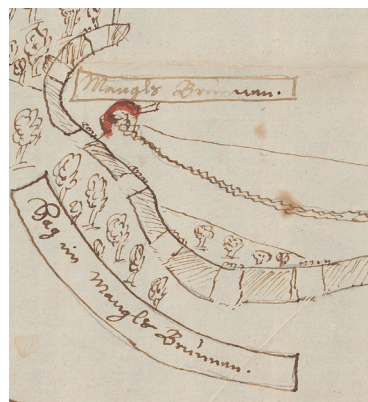 Mangls Brunnen.
im Mangls Brunnen.